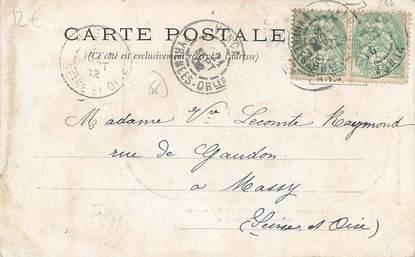 12€
66
CARTE POSTALE
(Ce côté est exclusivement réservé à l'adresse)
SEINE ET OISE
PYRÉNÉES-ORLES
66
Madame Vve Lecomte Raymond
rue de Gaudon
à Massy
(Seine et Oise)